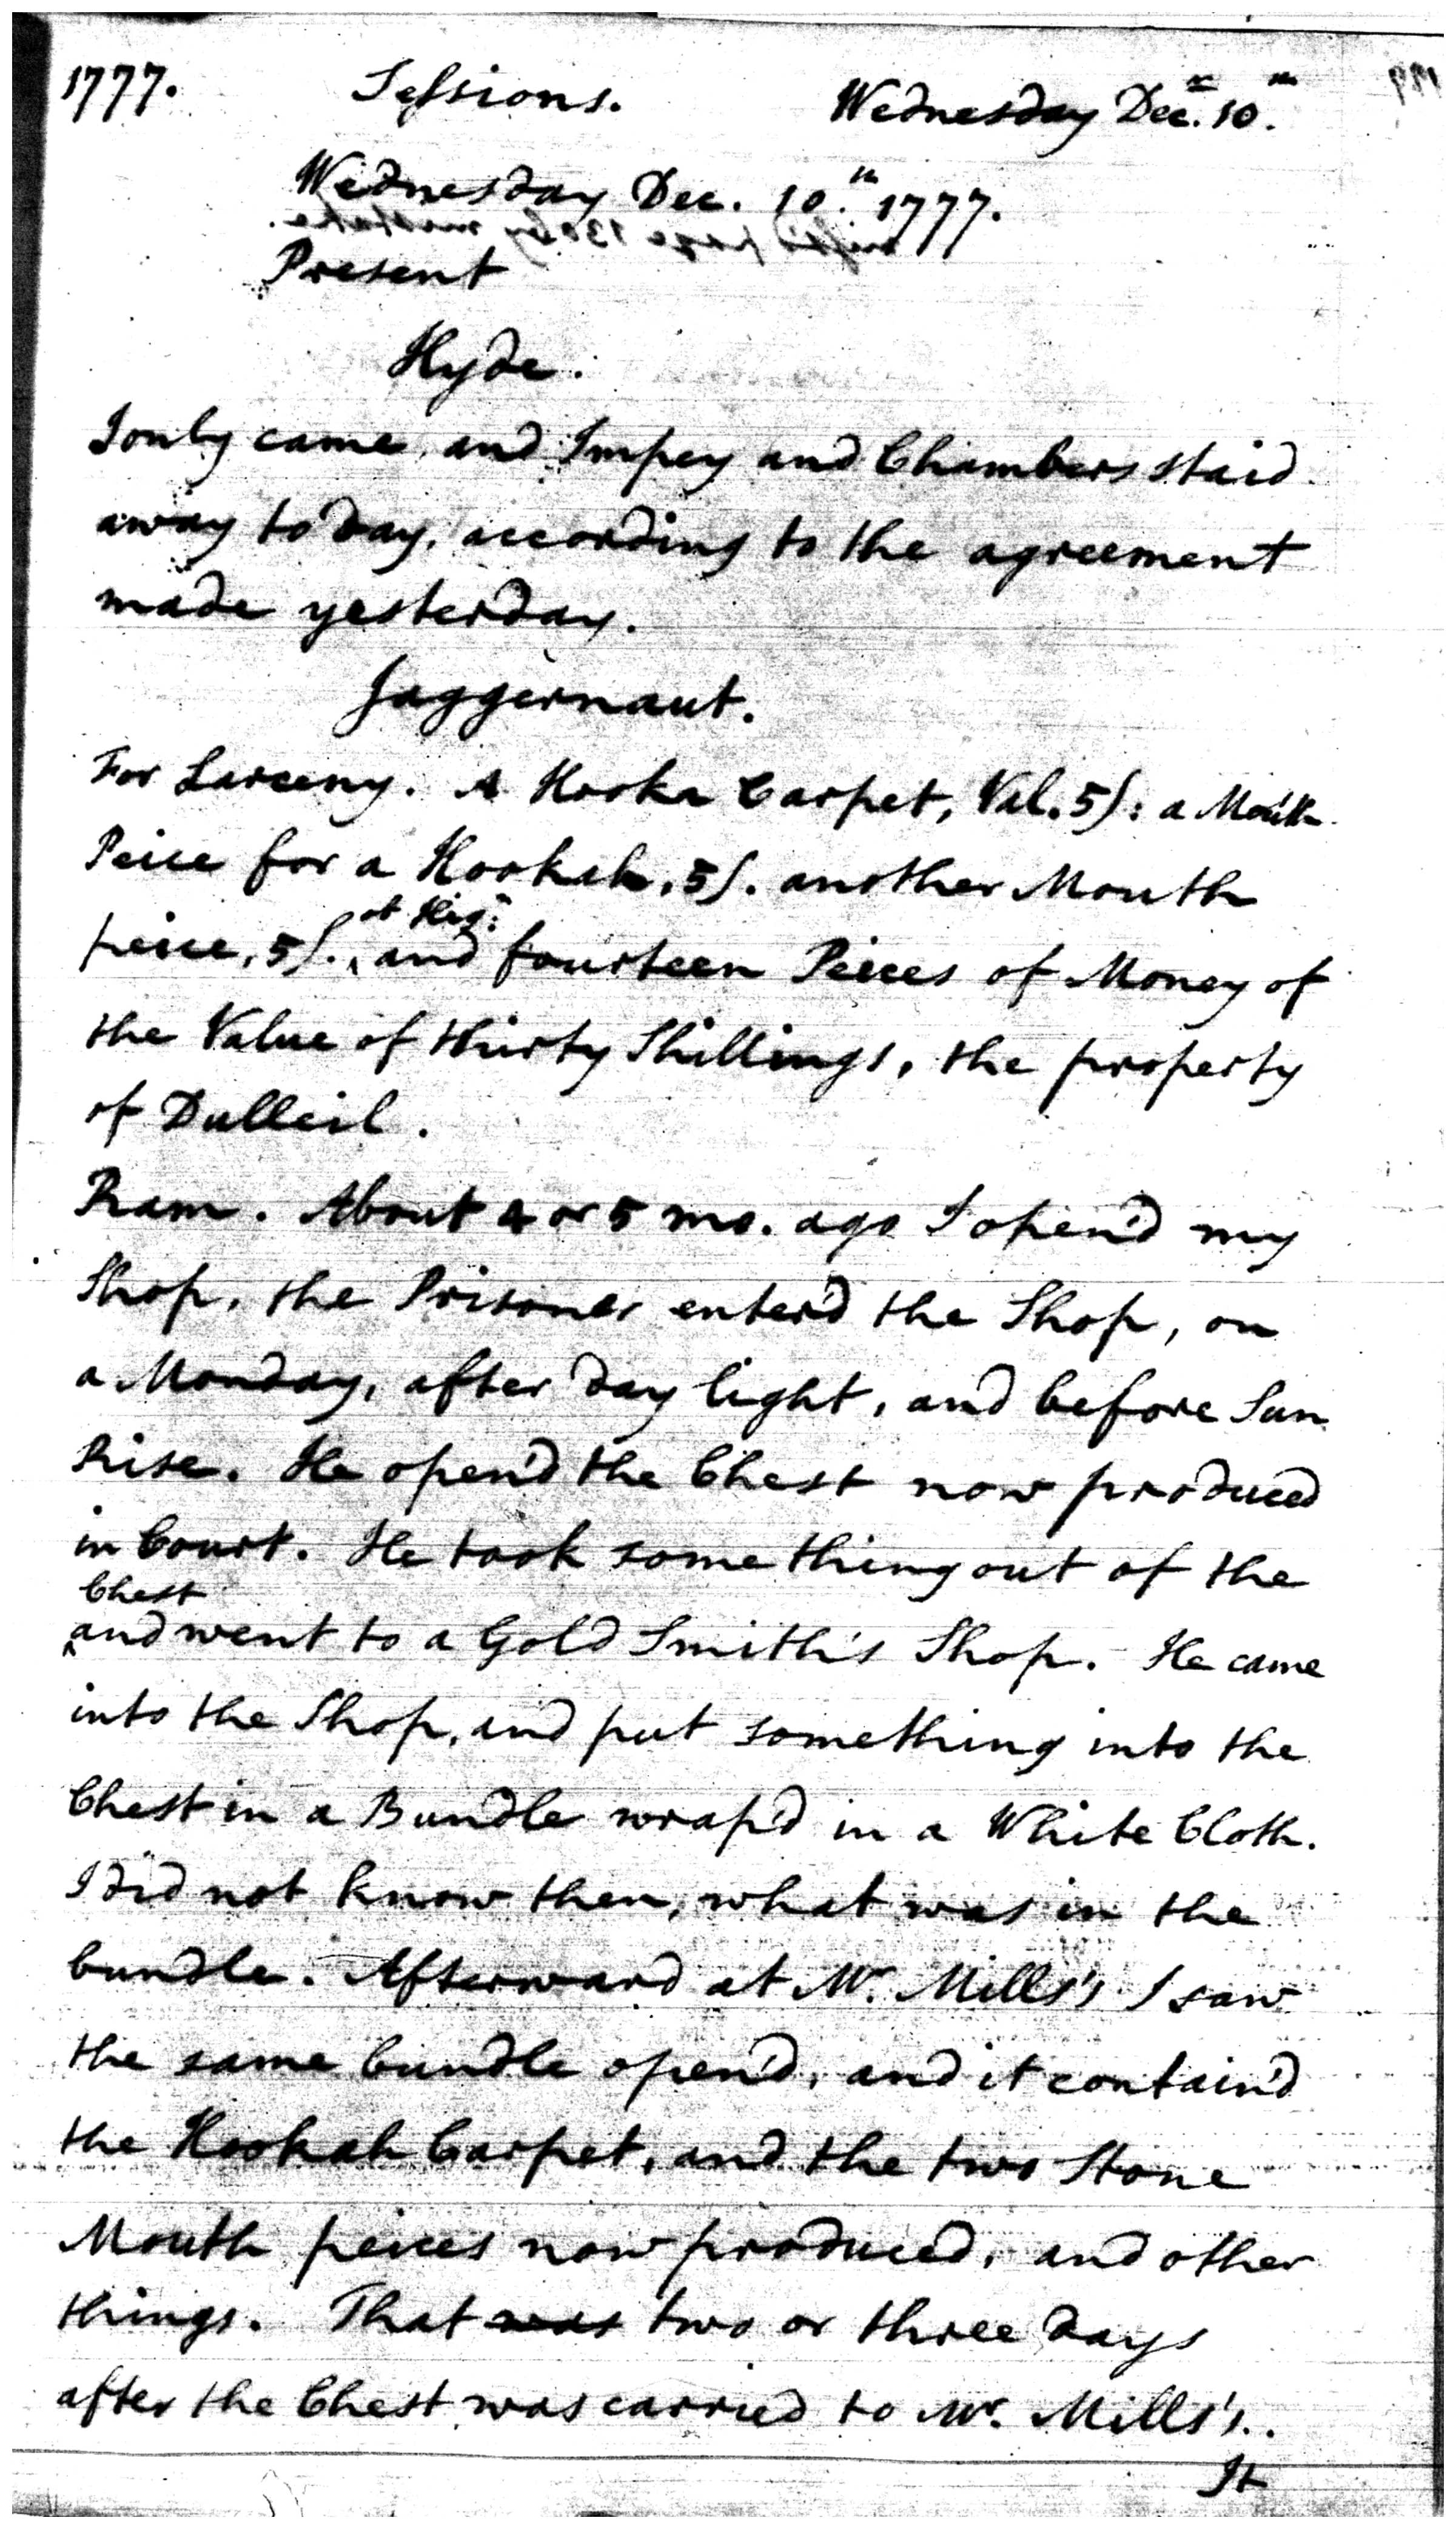 1777. Sessions. Wednesday Decr. 10th.
Wednesday Dec. 10th. 1777.
Present
Hyde.
I only came, and Impey and Chambers staid
away to day, according to the agreement
made yesterday.
Jaggernaut.
For Larceny. A Hooka Carpet, Val. 5/: a Mouth
Peice for a Hookah, 5/. another Mouth
peice, 5/. and fourteen Peices of Money of
the Value of thirty Shillings, the property
of Dulleil.
Ram. About 4 or 5 mo. ago I open'd my
Shop, the Prisoner enter'd the Shop, on
a Monday, after day light, and before Sun
Rise. He open'd the Chest now produced
in Court. He took some thing out of the
Chest
^and went to a Gold Smith's Shop. He came
into the Shop, and put something into the
Chest in a Bundle wrap'd in a White Cloth.
I did not know then, what was in the
bundle. Afterward at Mr. Mills's I saw
the same bundle open'd, and it contain'd
the Hookah Carpet, and the two Stone
Mouth peices now produced, and other
things. That was two or three days
after the Chest was carried to Mr. Mills's.
It